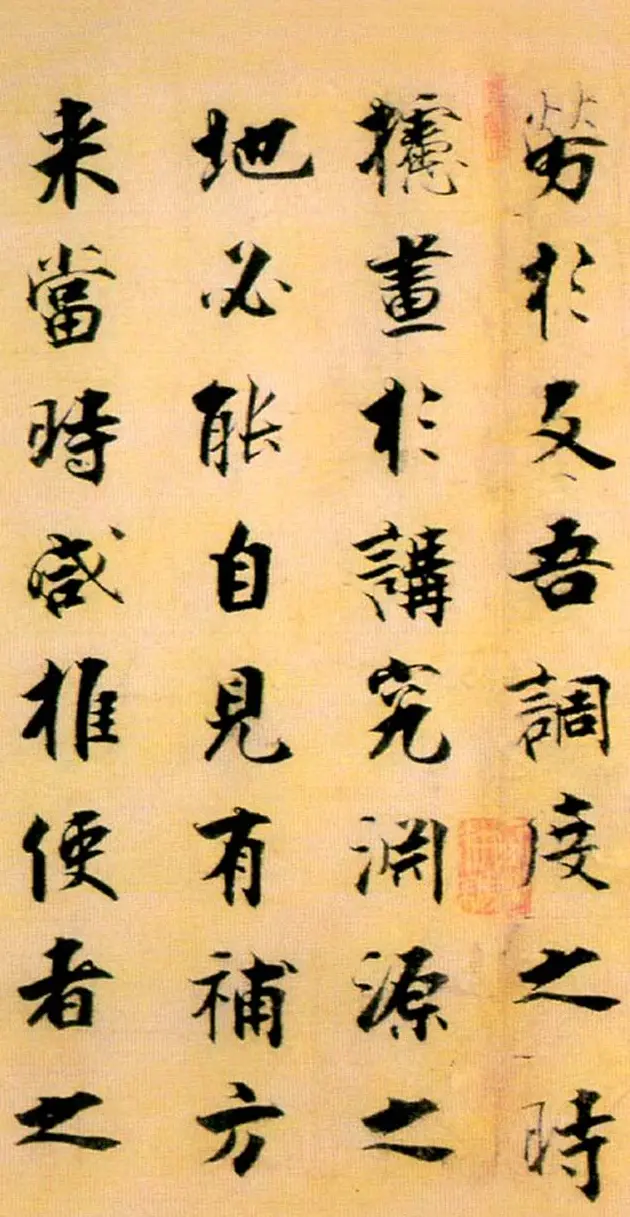 勞於文吾調度之時
攄畫於講究淵源之
地必能自見有補方
来當時咸推使者之